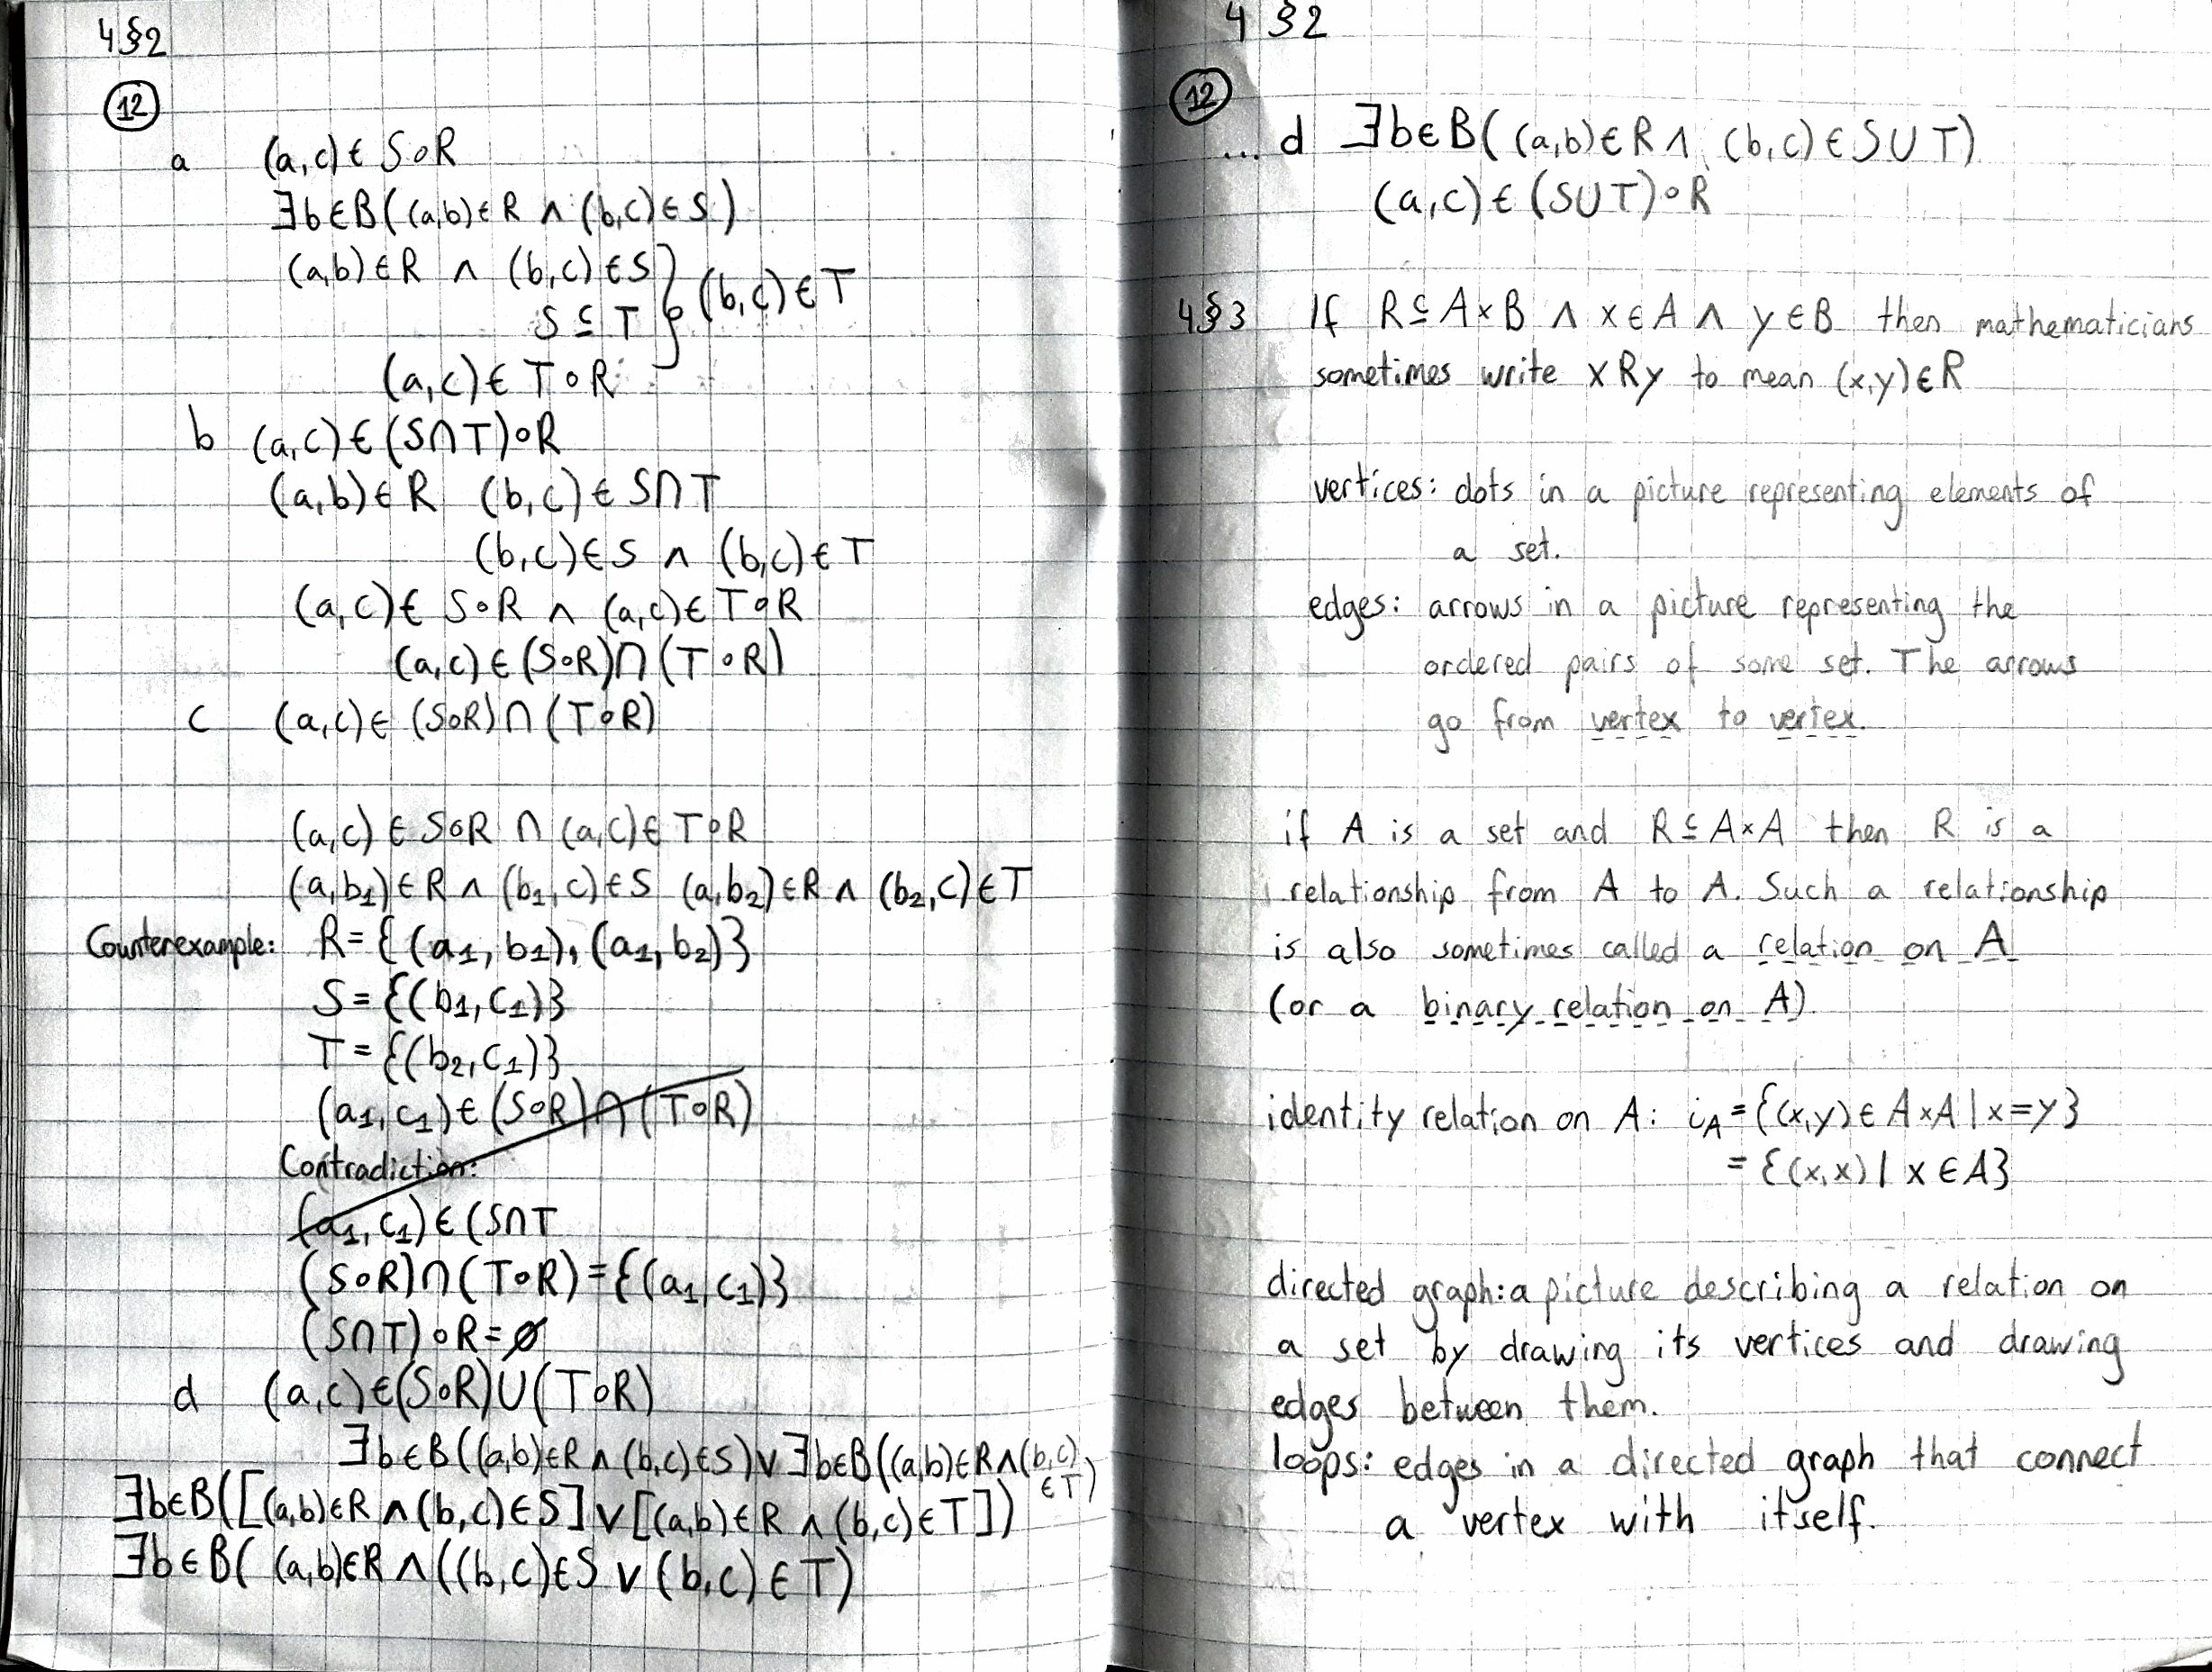 4§2
12
a (a,c) ∈ S∘R
∃b∈B((a,b)∈R ∧ (b,c)∈S)
(a,b)∈R ∧ (b,c)∈S
S ⊆ T } (b,c)∈T
(a,c)∈ T∘R
b (a,c)∈(S∩T)∘R
(a,b)∈R (b,c)∈ S∩T
(b,c)∈S ∧ (b,c)∈T
(a,c)∈ S∘R ∧ (a,c)∈T∘R
(a,c)∈(S∘R)∩(T∘R)
c (a,c)∈ (S∘R)∩(T∘R)
(a,c)∈S∘R ∩ (a,c)∈T∘R
(a,b₁)∈R ∧ (b₁,c)∈S (a,b₂)∈R ∧ (b₂,c)∈T
Counterexample: R={(a₁,b₁),(a₁,b₂)}
S={(b₁,c₁)}
T={(b₂,c₁)}
(a₁,c₁)∈(S∘R)∩(T∘R)
Contradiction:
(a₁,c₁)∈(S∩T
(S∘R)∩(T∘R)={(a₁,c₁)}
(S∩T)∘R=∅
d (a,c)∈(S∘R)∪(T∘R)
∃b∈B((a,b)∈R∧(b,c)∈S)∨∃b∈B((a,b)∈R∧(b,c)
∈T)
∃b∈B([(a,b)∈R∧(b,c)∈S]∨[(a,b)∈R∧(b,c)∈T])
∃b∈B((a,b)∈R∧((b,c)∈S∨(b,c)∈T)
4§2
12
... d ∃b∈B((a,b)∈R∧(b,c)∈S∪T)
(a,c)∈(S∪T)∘R
4§3 If R⊆A×B ∧ x∈A ∧ y∈B then mathematicians
sometimes write xRy to mean (x,y)∈R
vertices: dots in a picture representing elements of
a set.
edges: arrows in a picture representing the
ordered pairs of some set. The arrows
go from vertex to vertex.
if A is a set and R⊆A×A then R is a
relationship from A to A. Such a relationship
is also sometimes called a relation on A
(or a binary relation on A).
identity relation on A: i_A={(x,y)∈A×A|x=y}
={(x,x)|x∈A}
directed graph: a picture describing a relation on
a set by drawing its vertices and drawing
edges between them.
loops: edges in a directed graph that connect
a vertex with itself.